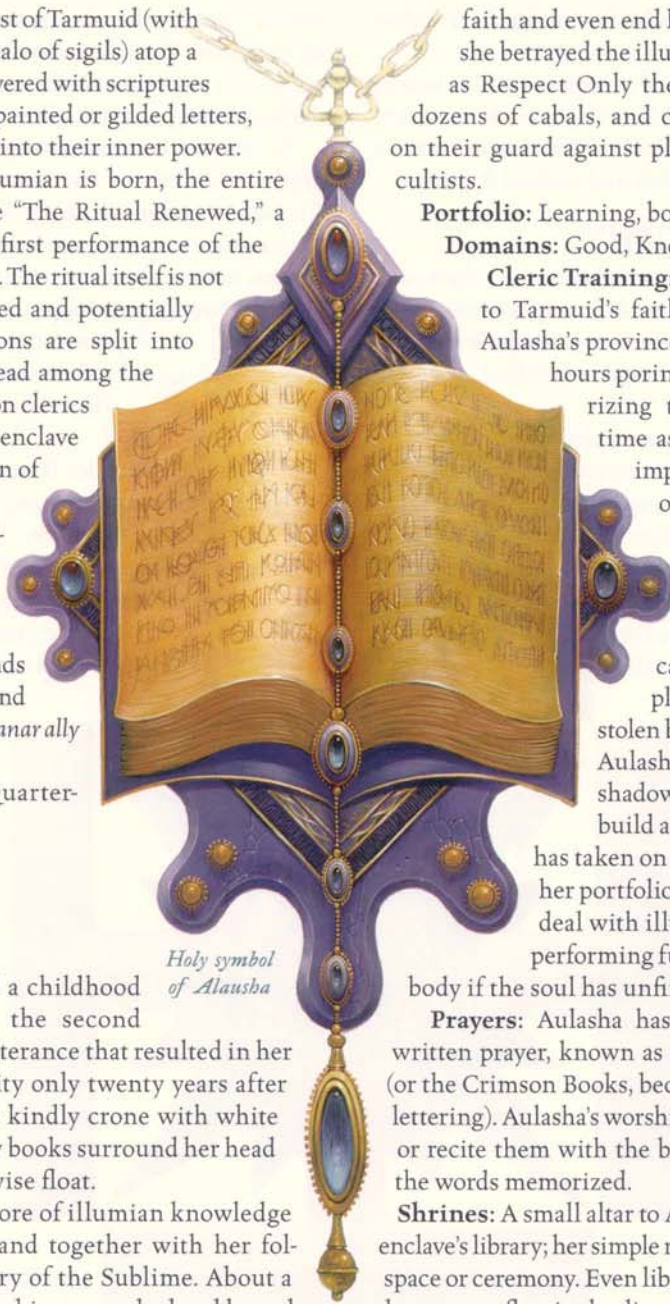 st of Tarmuid (with
alo of sigils) atop a
vered with scriptures
painted or gilded letters,
into their inner power.
umian is born, the entire
e "The Ritual Renewed," a
first performance of the
. The ritual itself is not
ed and potentially
ons are split into
ead among the
on clerics
enclave
n of
-
ds
nd
anar ally
uarter-
a childhood
the second
terance that resulted in her
ity only twenty years after
kindly crone with white
y books surround her head
wise float.
ore of illumian knowledge
and together with her fol-
ry of the Sublime. About a
Holy symbol
of Alausha
faith and even end
she betrayed the illu
as Respect Only the
dozens of cabals, and
on their guard against pl
cultists.
Portfolio: Learning, bo
Domains: Good, Kno
Cleric Training:
to Tarmuid's faith
Aulasha's province
hours porin
rizing t
time as
imp
o
ca
pl
stolen b
Aulash
shadow
build a
has taken on
her portfolio
deal with ill
performing fu
body if the soul has unfi
Prayers: Aulasha has
written prayer, known as
(or the Crimson Books, bec
lettering). Aulasha's worsh
or recite them with the b
the words memorized.
Shrines: A small altar to A
enclave's library; her simple r
space or ceremony. Even lib